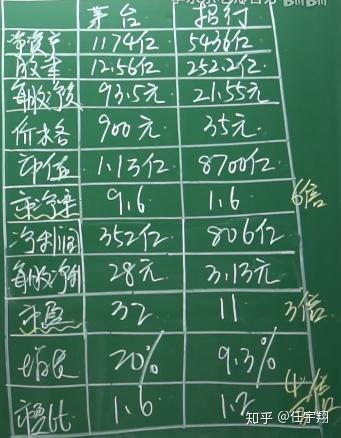 茅台 招行
净资产 1174亿 5436亿
股本 12.56亿 252.2亿
每股净资 93.5元 21.55元
价格 900元 35元
市值 1.13亿 8700亿
市净率 9.6 1.6 6倍
净利润 352亿 806亿
每股净利 28元 3.13元
市盈 32 11 3倍
增长 20% 9.3%
1.6 1.2
知乎 @任宇翔